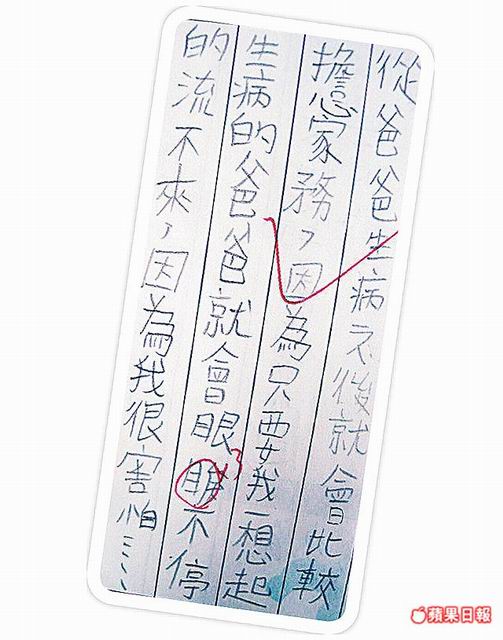 從爸爸生病之後就會比較
擔家務，因為只要我一想起
生病的爸爸就會眼不停
的流不來，因為我很害怕……
蘋果日報